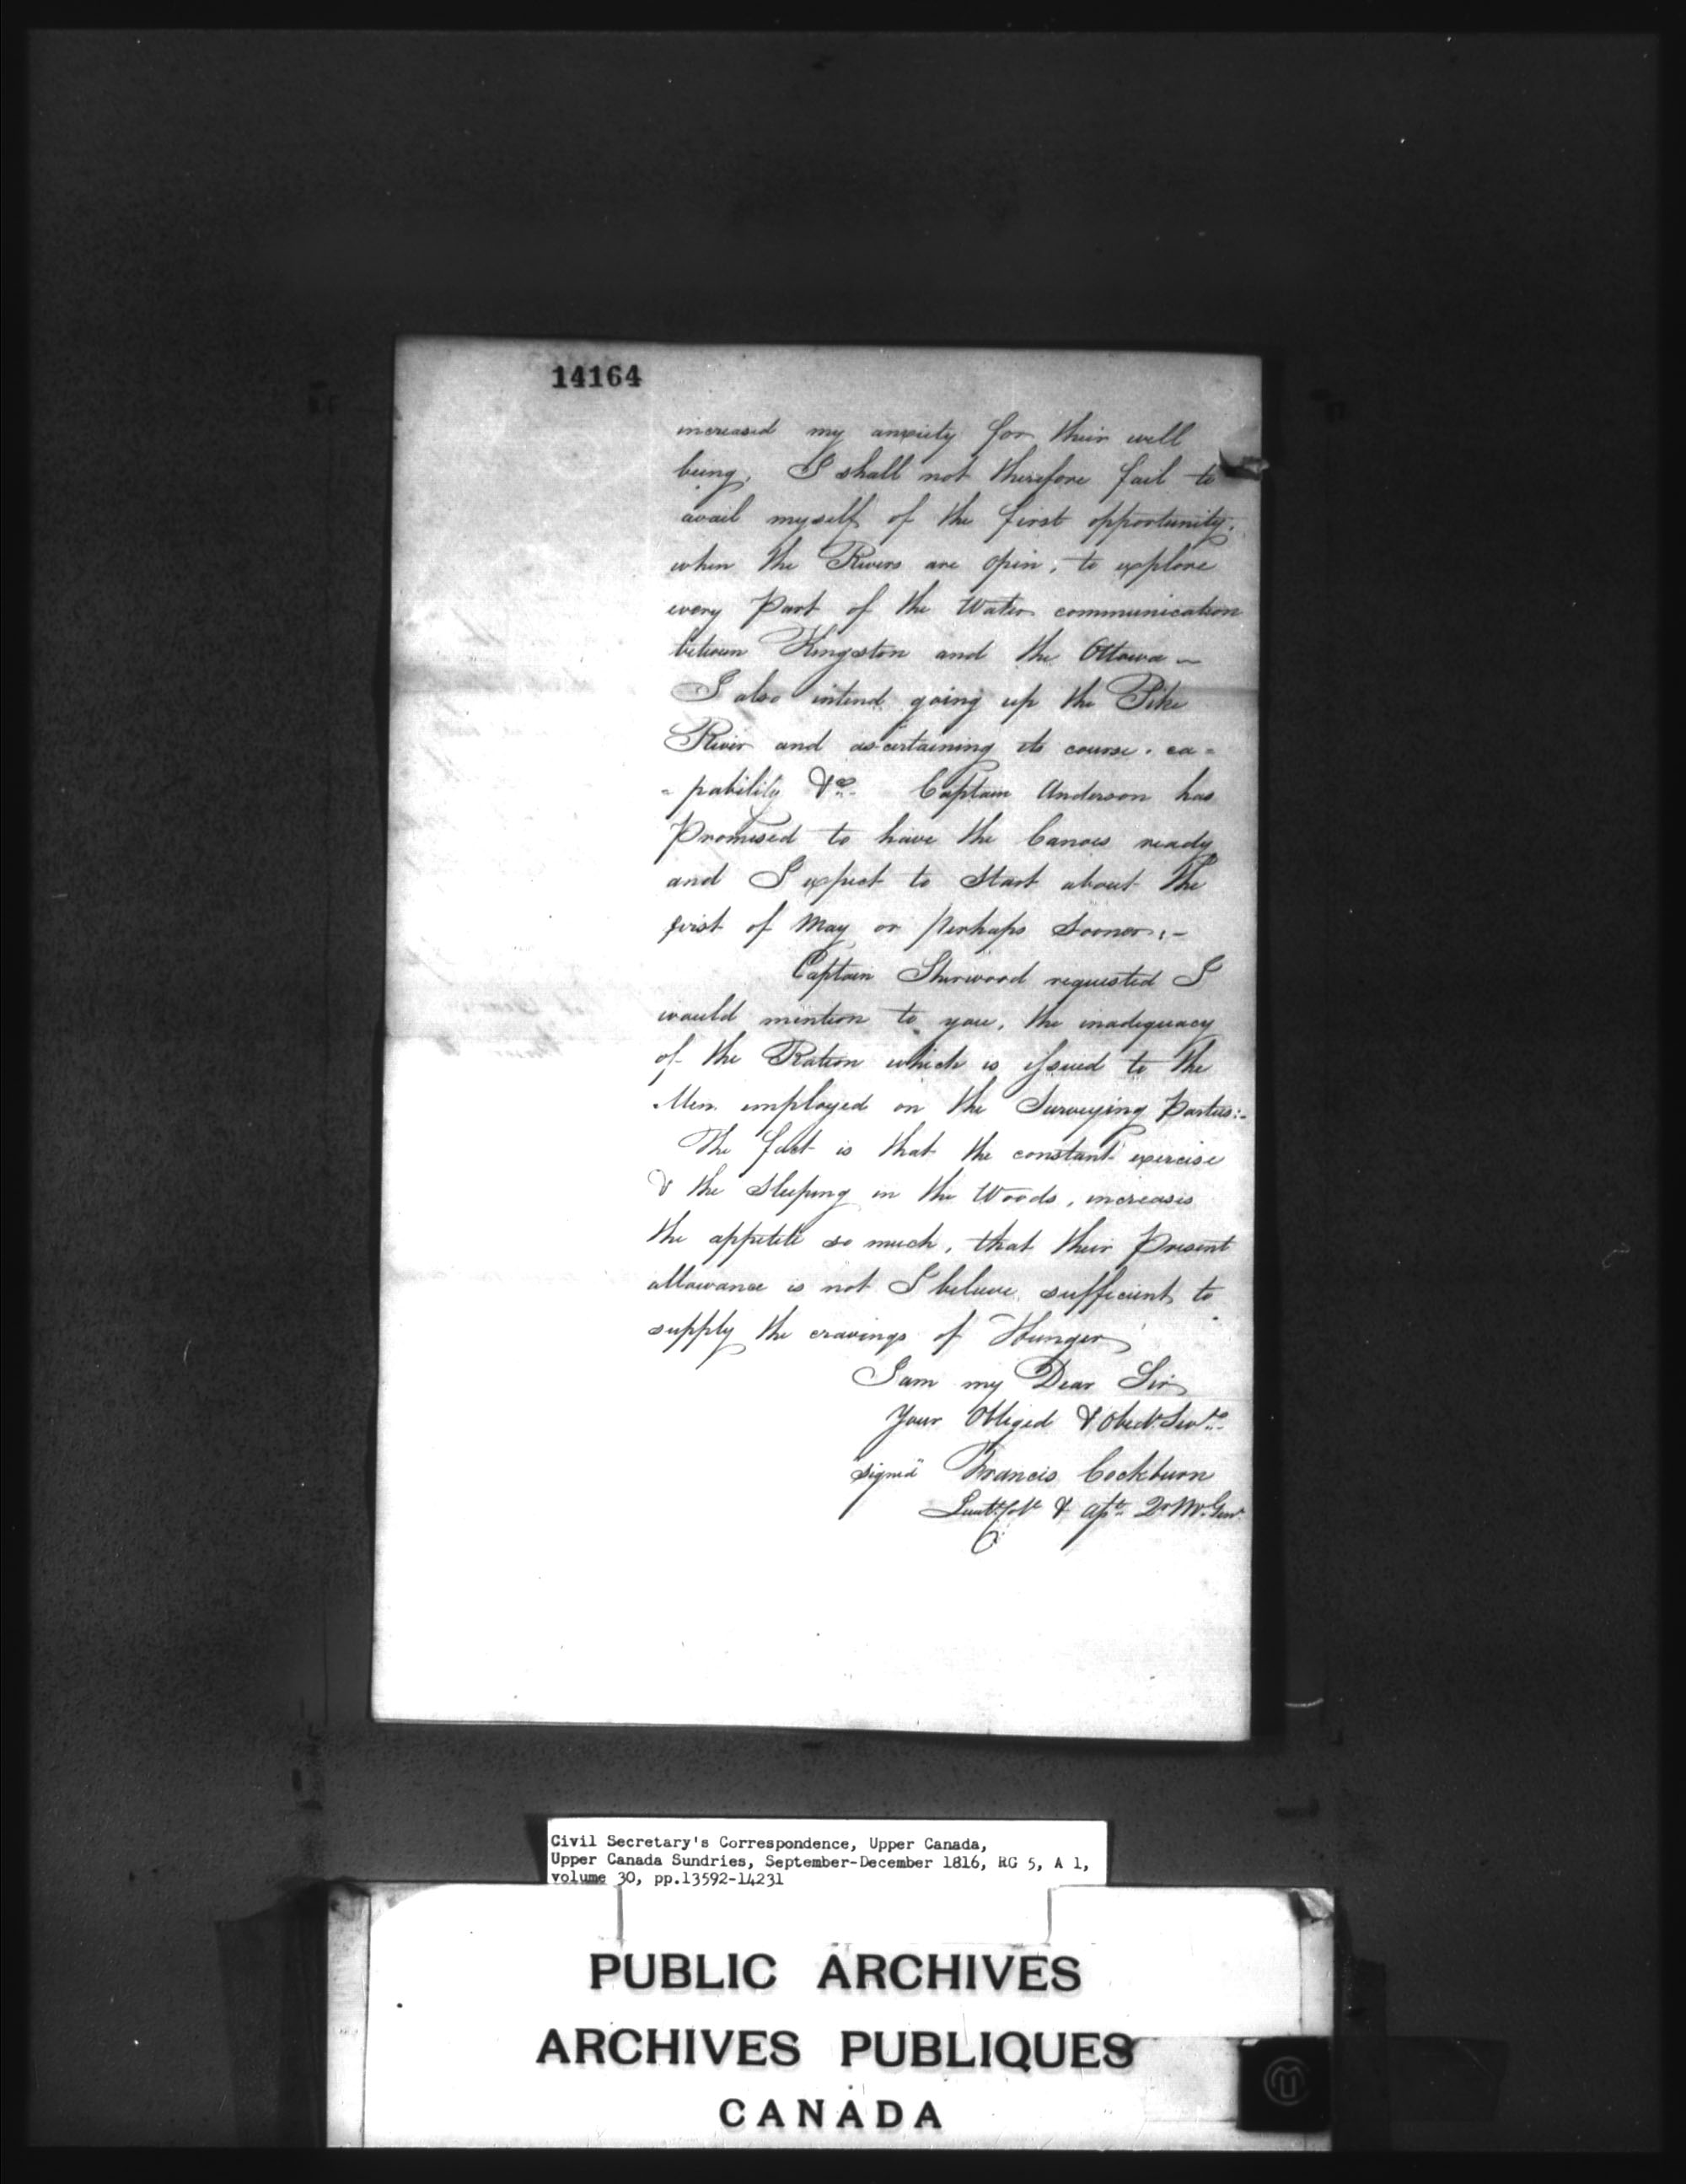 14164
increased my anxiety for their well
being. I shall not therefore fail to
avail myself of the first opportunity,
when the Rivers are open, to explore
every Part of the Water communication
between Kingston and the Ottawa —
I also intend going up the Pike
River and ascertaining its course, ca=
=pability &c. Captain Anderson has
Promised to have the Canoes ready
and I expect to Start about the
first of May or perhaps Sooner:-
Captain Sherwood requested I
would mention to you, the inadequacy
of the Ration which is issued to the
Men employed on the Surveying Parties:-
The fact is that the constant exercise
& the Sleeping in the Woods, increases
the appetite so much, that their Present
allowance is not I believe sufficient to
supply the cravings of Hunger
I am my Dear Sir
Your Obliged & Obedt Servt
signed Francis Cockburn
Lieutt Col & Q M Genl
Civil Secretary's Correspondence, Upper Canada,
Upper Canada Sundries, September-December 1816, RG 5, A 1,
volume 30, pp.13592-14231
PUBLIC ARCHIVES
ARCHIVES PUBLIQUES
CANADA